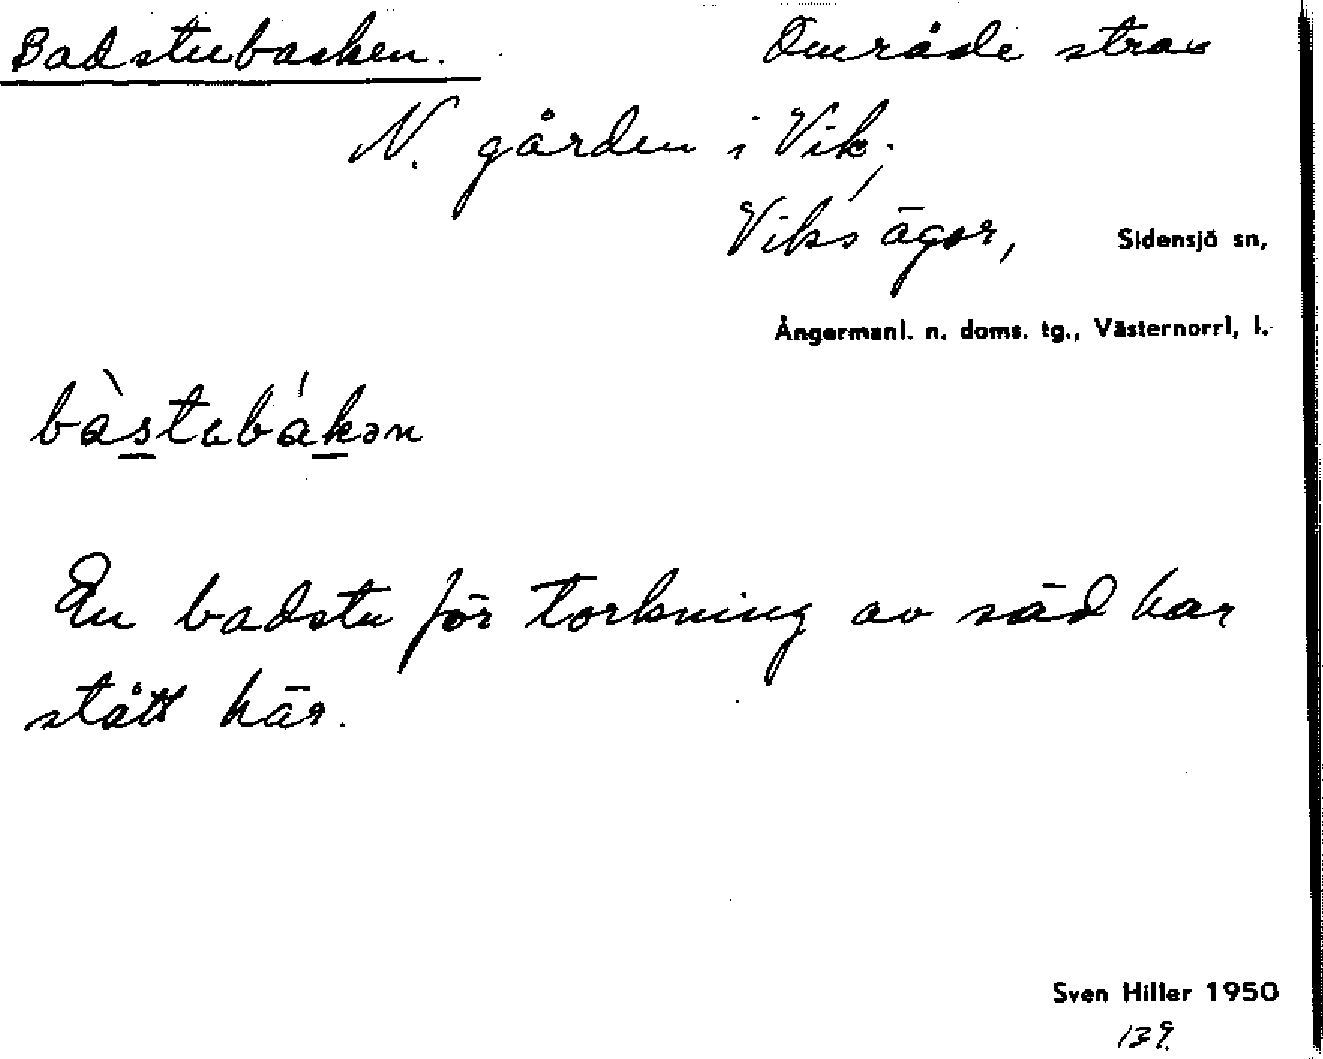 Badstubacken. Område strax
N. gården i Vik;
Viks ägor, Sidensjö sn,
Ångermanl. n. doms. tg., Västernorrl. l.
bàstubákən
En badstu för torkning av säd har
stått här.
Sven Hiller 1950
139.